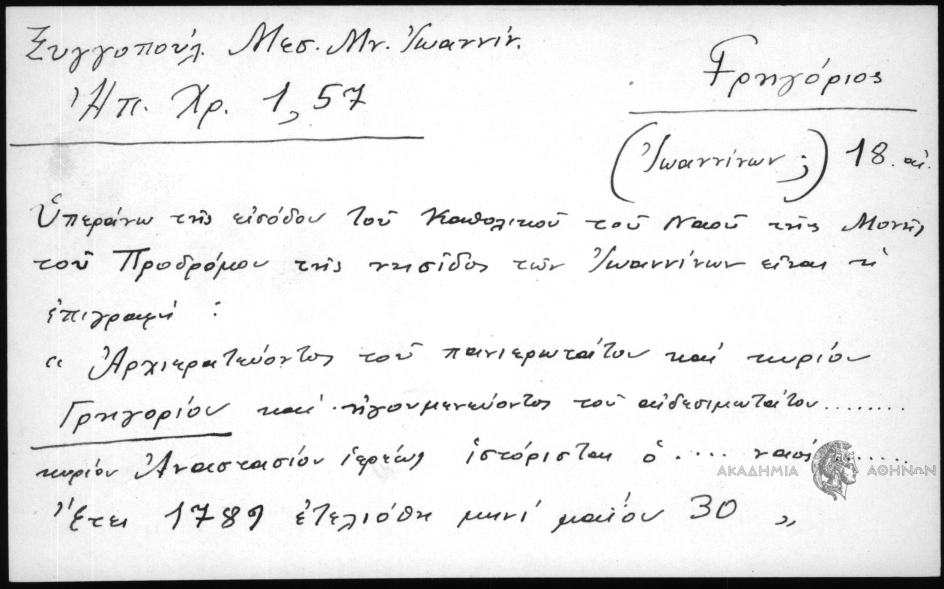 Ξυγγοπούλ. Μεσ. Μν. Ἰωαννίν.
Ἠπ. Χρ. 1,57
Γρηγόριος
(Ἰωαννίνων;) 18. αἰ.
Ὑπεράνω τῆς εἰσόδου τοῦ Καθολικοῦ τοῦ Ναοῦ τῆς Μονῆς
τοῦ Προδρόμου τῆς νησῖδος τῶν Ἰωαννίνων εἶναι ἡ
ἐπιγραφή :
" Ἀρχιερατεύοντος τοῦ πανιερωτάτου καί κυρίου
Γρηγορίου καί ἡγουμενεύοντος τοῦ αἰδεσιμωτάτου........
κυρίου Ἀναστασίου ἱερέως ἱστόρισται ὁ .... ναός ......
Ἔτει 1789 ἐτελιόθη μηνί μαΐου 30 "
ΑΚΑΔΗΜΙΑ ΑΘΗΝΩΝ